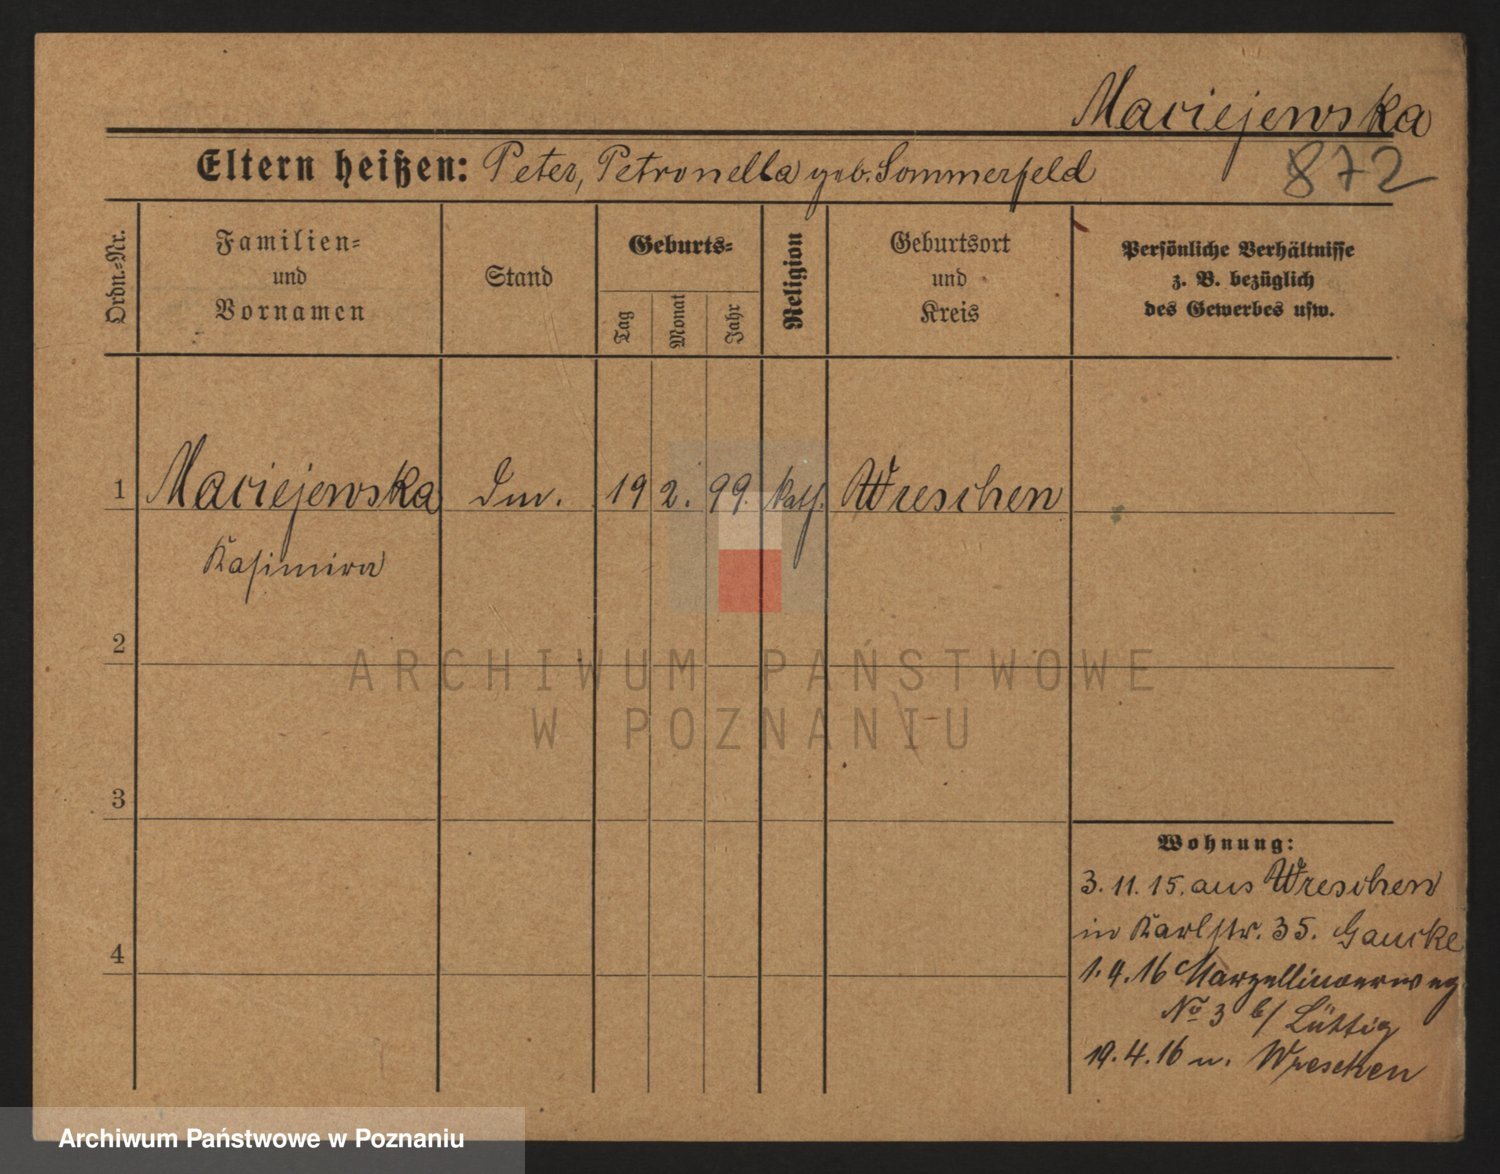 Maciejewska
872
Eltern heißen: Peter, Petronella geb. Sommerfeld
Ordn.-Nr.
Familien-
und
Vornamen
Stand
Geburts-
Tag
Monat
Jahr
Religion
Geburtsort
und
Kreis
Persönliche Verhältnisse
z. B. bezüglich
des Gewerbes usw.
1 Maciejewska 19 2. 99. kath. Wreschen
Kasimira
2
3
4
ARCHIWUM PAŃSTWOWE
W POZNANIU
Wohnung:
3. 11. 15. aus Wreschen
in Karlstr. 35. Gaucke
1. 4. 16 Marzellinoerweg
No 3 b/ Lüttig
19. 4. 16 n. Wreschen
Archiwum Państwowe w Poznaniu